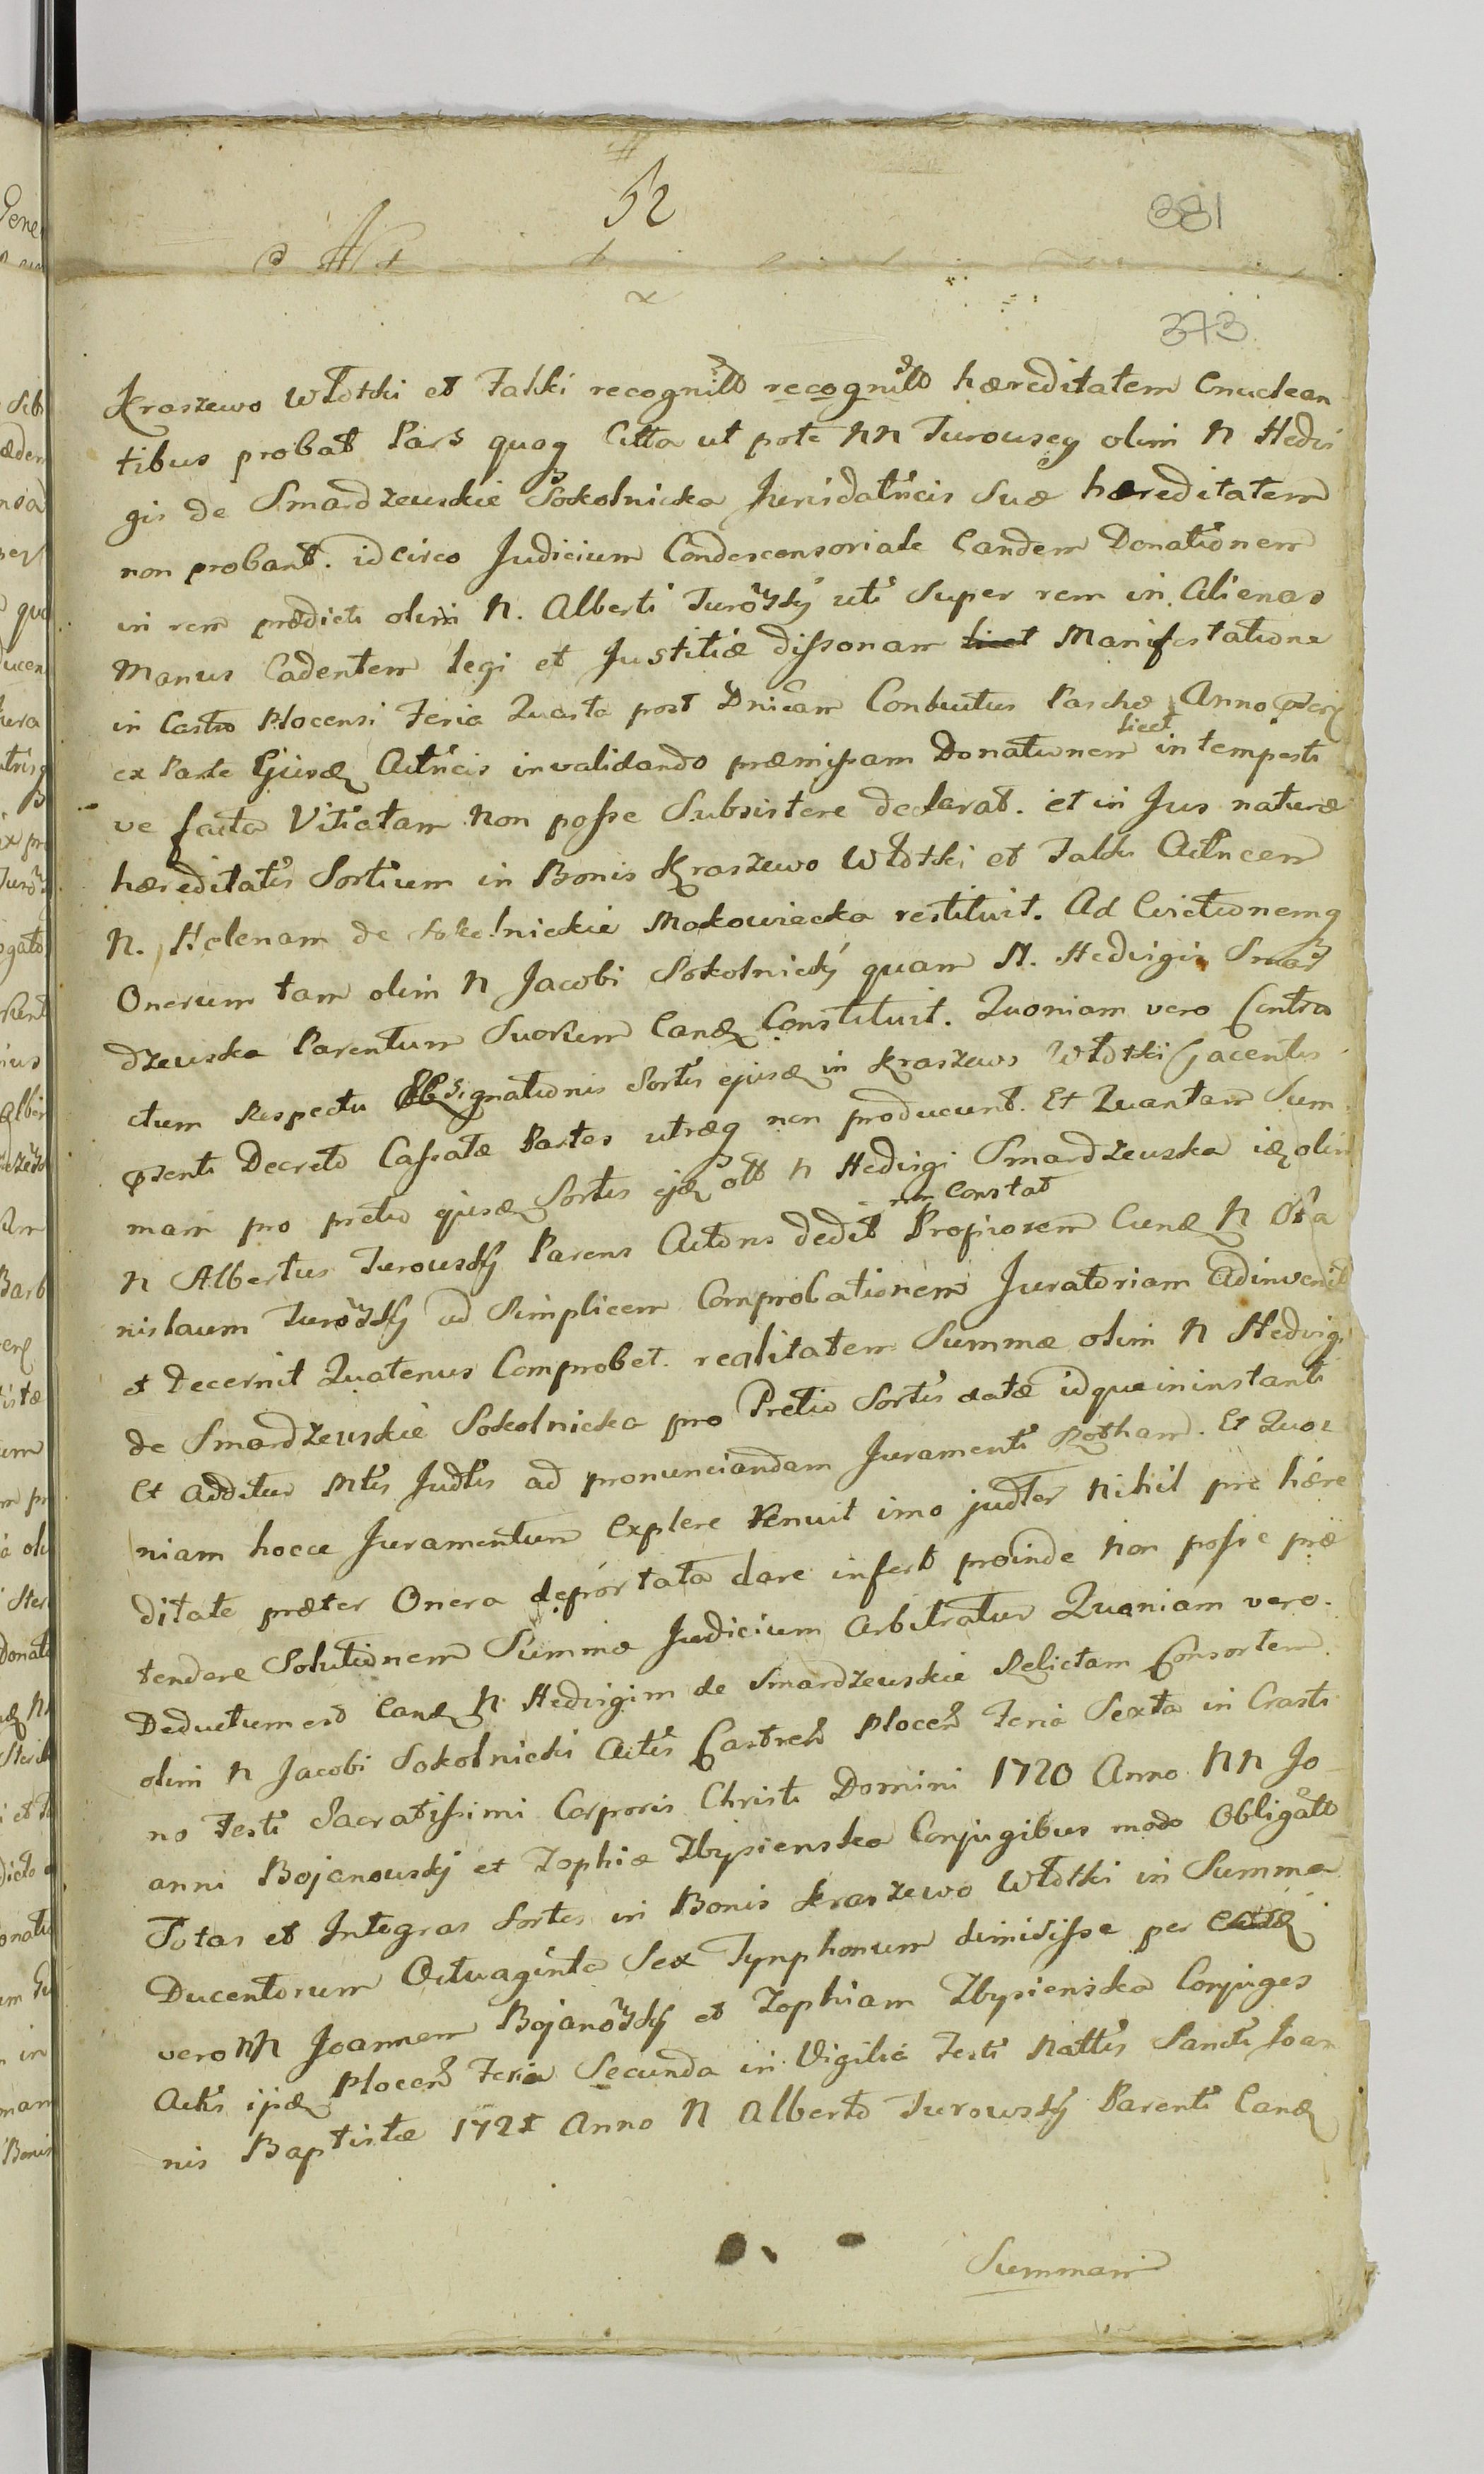 52
381
373
Kraszewo Włotki et Falki recognitt recognitt hæreditatem Enuclean
tibus probat Pars quoq Citta ut pote NN Turouscy olim N Hedvi
gis de Smardzeuskie Sokolnicka Jurisdatricis Suæ hæreditatem
non probant. idcirco Judicium Condescensoriale Eandem Donationem
in rem prædicti olim N. Alberti Turowskÿ uti Super rem in Alienas
Manus Cadentem legi et Justitiæ dissonam licet Manifestatione
in Castro Plocensi Feria Quarta post Dnicam Conductus Paschæ Anno
ex Parte Ejusd Actricis invalidando præmissam Donationem licet intempesti
ve facta Vitiatam non posse Subsistere declarat. et in Jus naturæ
hæreditatis Sortium in Bonis Kraszewo Włotki et Falki Actricem
N. Helenam de Sokolnickie Makowiecka restituit. Ad Evictionemq
Onerum tam olim N Jacobi Sokolnickÿ quam N. Hedvigis Smar
dzeuska Parentum Suorum Eand Constituit. Quoniam vero Contra
ctum Respectu Obsignationis Sortis ejusd in Kraszewo Włotki Jacentis
Decreto Cassatæ Partes utræq non producunt. Et Quantam Sum
mam pro pretio ejusd Sortis ejd N Hedvigi Smardzeuska id olim
N Albertus Turouskÿ Parens Actoris dedit non Constat Propiorem Eund N
nislaum Turowskÿ ad Simplicem Comprobationem Juratoriam Adinvenit
et Decernit Quatenus Comprobet realitatem Summæ olim N Hedvigi
de Smardzeuskie Sokolnicka pro Pretio Sortis datæ idque in instanti
Et Additus Mtis Judtis ad pronunciandam Juramenti Rotham. Et Quo
niam hocce Juramentum Explere Renuit imo judter Nihil pro hære
ditate præter Onera deportata dare infert proinde Non posse præ
tendere Solutionem Summæ Judicium Arbitratur Quoniam vero
Deductum est Eand N Hedvigim de Smardzeuskie Relictam Consortem
olim N Jacobi Sokolnicki Actis Castren Plocen Feria Sexta in Crasti
no Festi Sacratissimi Corporis Christi Domini 1720 Anno NN Jo
anni Bojanouskÿ et Zophiæ Zbysienska Conjugibus modo Obligatto
Totas et Integras Sortes in Bonis Kraszewo Włotki in Summa
Ducentorum Octuaginta Sex Tynphonum dimisisse per
vero NN Joannem Bojanowskÿ et Zophiam Zbysienska Conjuges
Actis ipd Plocen Feria Secunda in Vigilia Festi Nattis Sancti Joan
nis Baptistæ 1721 Anno N Alberto Turowskÿ Parenti Eand
Summam